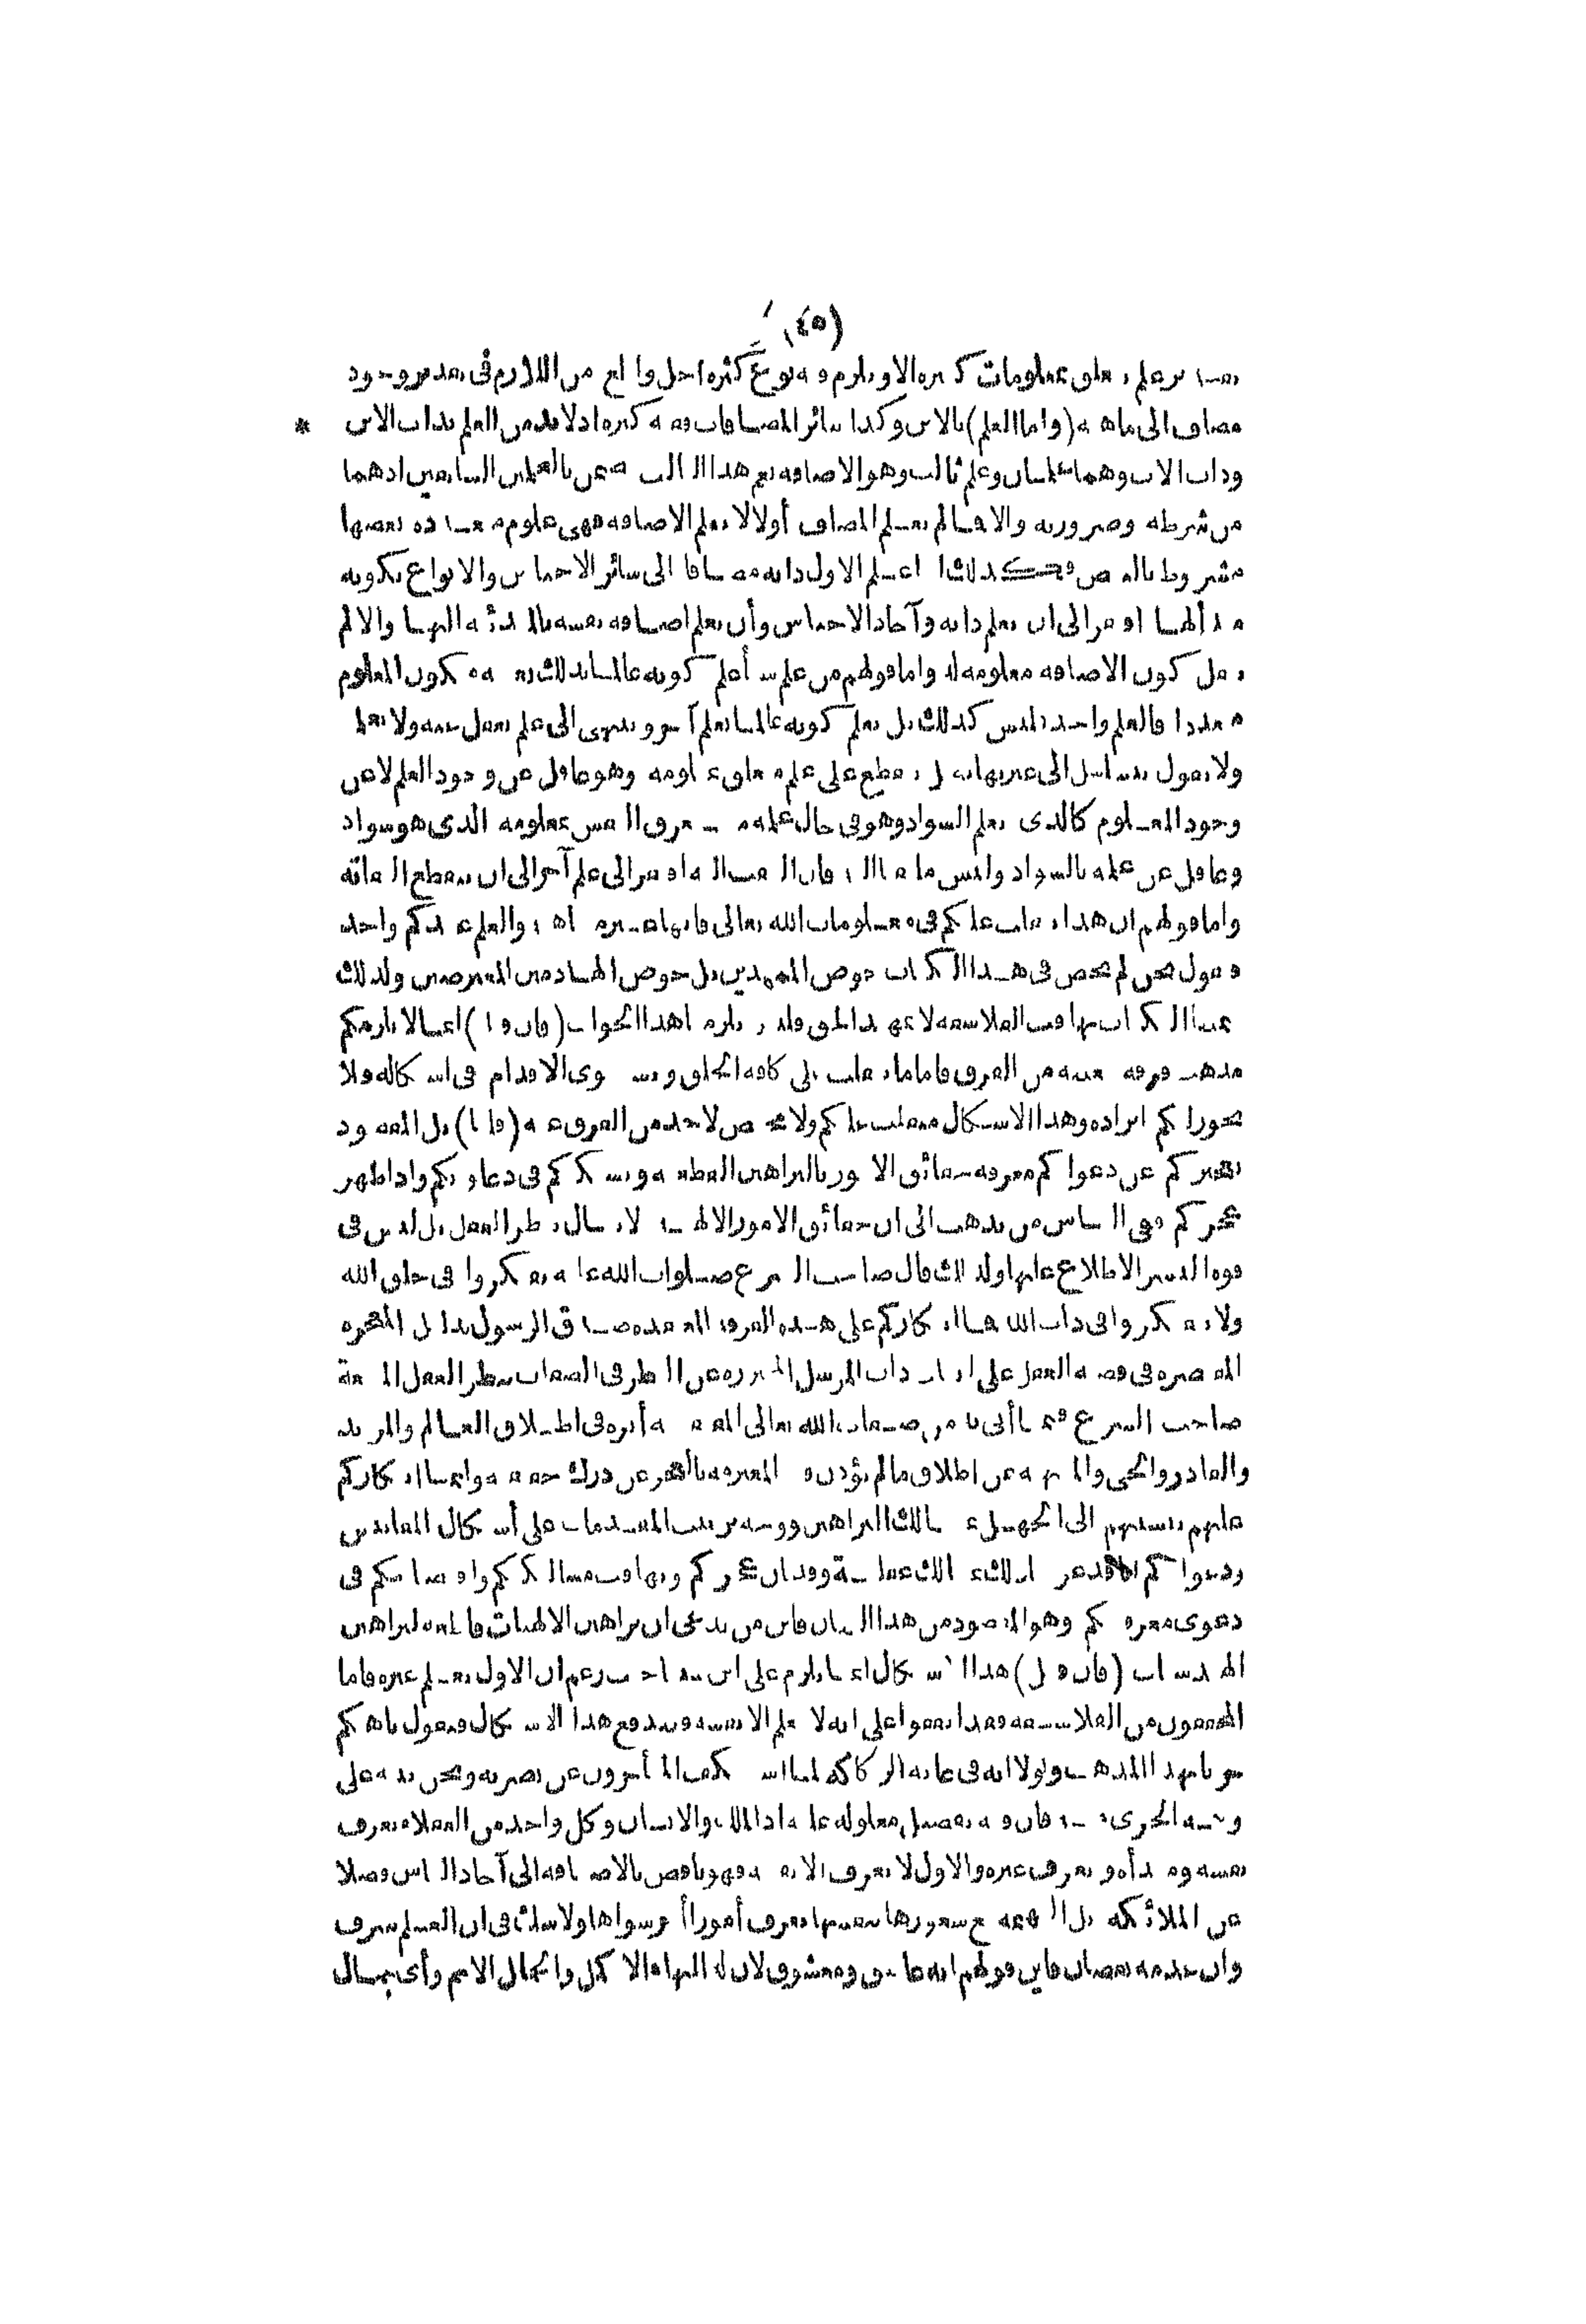 (٤٥)
علم يتعلق بمعلومات كثيرة الا ويلزم فيه نوع كثرة أجل وأبلغ من اللازم في تقدير وجود
مضاف الى ماهية (واما العلم) بالابن وكذا سائر المضافات ففيه كثرة اذ لا بد من العلم بذات الابن
وذات الاب وهما علمان وعلم ثالث وهو الاضافة نعم هذا الثالث مضمن بالعلمين السابقين اذ هما
من شرطه وضرورته والا فما لم يعلم المضاف أولا لا تعلم الاضافة فهى علوم متعددة بعضها
مشروط بالبعض فكذلك اذا علم الاول ذاته مضافا الى سائر الاجناس والانواع بكونه
مبدألها افتقر الى ان يعلم ذاته وآحاد الاجناس وأن يعلم اضافة نفسه بالمبدئية اليها والا لم
يعقل كون الاضافة معلومة له واما قولهم من علم شيأ علم كونه عالما بذلك بعينه فيكون المعلوم
متعددا فالعلم واحد فليس كذلك بل يعلم كونه عالما بعلم آخر وينتهى الى علم يغفل عنه ولا يعلمه
ولا نقول يتسلسل الى غير نهاية بل ينقطع على علم متعلق بمعلومه وهو غافل عن وجود العلم لا عن
وجود المعلوم كالذى يعلم السواد وهو فى حال علمه مستغرق النفس بمعلومه الذى هو سواد
وغافل عن علمه بالسواد وليس ملتفتا اليه فان التفت اليه افتقر الى علم آخر الى ان ينقطع التفاته
واما قولهم ان هذا ينقلب عليكم فى معلومات الله تعالى فانها غير متناهية والعلم عندكم واحد
فنقول نحن لم نخض فى هذا الكتاب خوض الممهدين بل خوض الهادمين المعترضين ولذلك
الكتاب تهافت الفلاسفة لا تمهيد الحق فليس يلزمنا هذا الجواب (فان قيل) انا لا نلزمكم
مذهب فرقة معينة من الفرق فاما ما ينقلب على كافة الخلق وتستوى الاقدام فى اشكاله فلا
يجوز لكم ايراده وهذا الاشكال منقلب عليكم ولا محيص لاحد من الفرق عنه (قلنا) بل المقصود
تعجيزكم عن دعواكم معرفة حقائق الامور بالبراهين القطعية وتشكيككم فى دعاويكم واذا ظهر
عجزكم ففى الناس من يذهب الى ان حقائق الامور الالهية لا تنال بنظر العقل بل ليس فى
قوة البشر الاطلاع عليها ولذلك قال صاحب الشرع صلوات الله عليه تفكروا فى خلق الله
ولا تتفكروا فى ذات الله فما انكاركم على هذه الفرقة المعتقدة صدق الرسول بدليل المعجزة
المقتصرة فى قضية العقل على اثبات ذات المرسل المتحرزة عن النظر فى الصفات بنظر العقل المتبعة
صاحب الشرع فيما أتى به من صفات الله تعالى المقتفية أثره فى اطلاق العالم والمريد
والقادر والحى والمنتهية عن اطلاق ما لم يؤذن فيه المعترفة بالعجز عن درك حقيقته وانما انكاركم
عليهم بنسبتهم الى الجهل بمسالك البراهين ووجه ترتيب المقدمات على أشكال المقاييس
ودعواكم انا قد عرفنا ذلك بمسالك عقلية وقد بان عجزكم وتهافت مسالككم وافتضاحكم فى
دعوى معرفتكم وهو المقصود من هذا البيان فاين من يدعى ان براهين الالهيات قاطعة كبراهين
الهندسيات (فان قيل) هذا الاشكال انما يلزم على ابن سينا حيث زعم ان الاول يعلم غيره فاما
المحققون من الفلاسفة فقد اتفقوا على انه لا يعلم الا نفسه فيندفع هذا الاشكال فنقول ناهيكم
خزيا بهذا المذهب ولولا انه فى غاية الركاكة لما استنكف المتأخرون عن نصرته ونحن ننبه على
وجه الخزى فيه فان فيه تفضيل معلوله عليه اذ الملك والانسان وكل واحد من العقلاء يعرف
نفسه ومبدأه ويعرف غيره والاول لا يعرف الا نفسه فهو ناقص بالاضافة الى آحاد الناس فضلا
عن الملائكة بل البهيمة مع شعورها بنفسها تعرف أمورا أخر سواها ولا شك فى ان العلم شرف
وان عدمه نقصان فاين قولهم انه عاشق ومعشوق لان له البهاء الاكمل والجمال الاتم وأى جمال